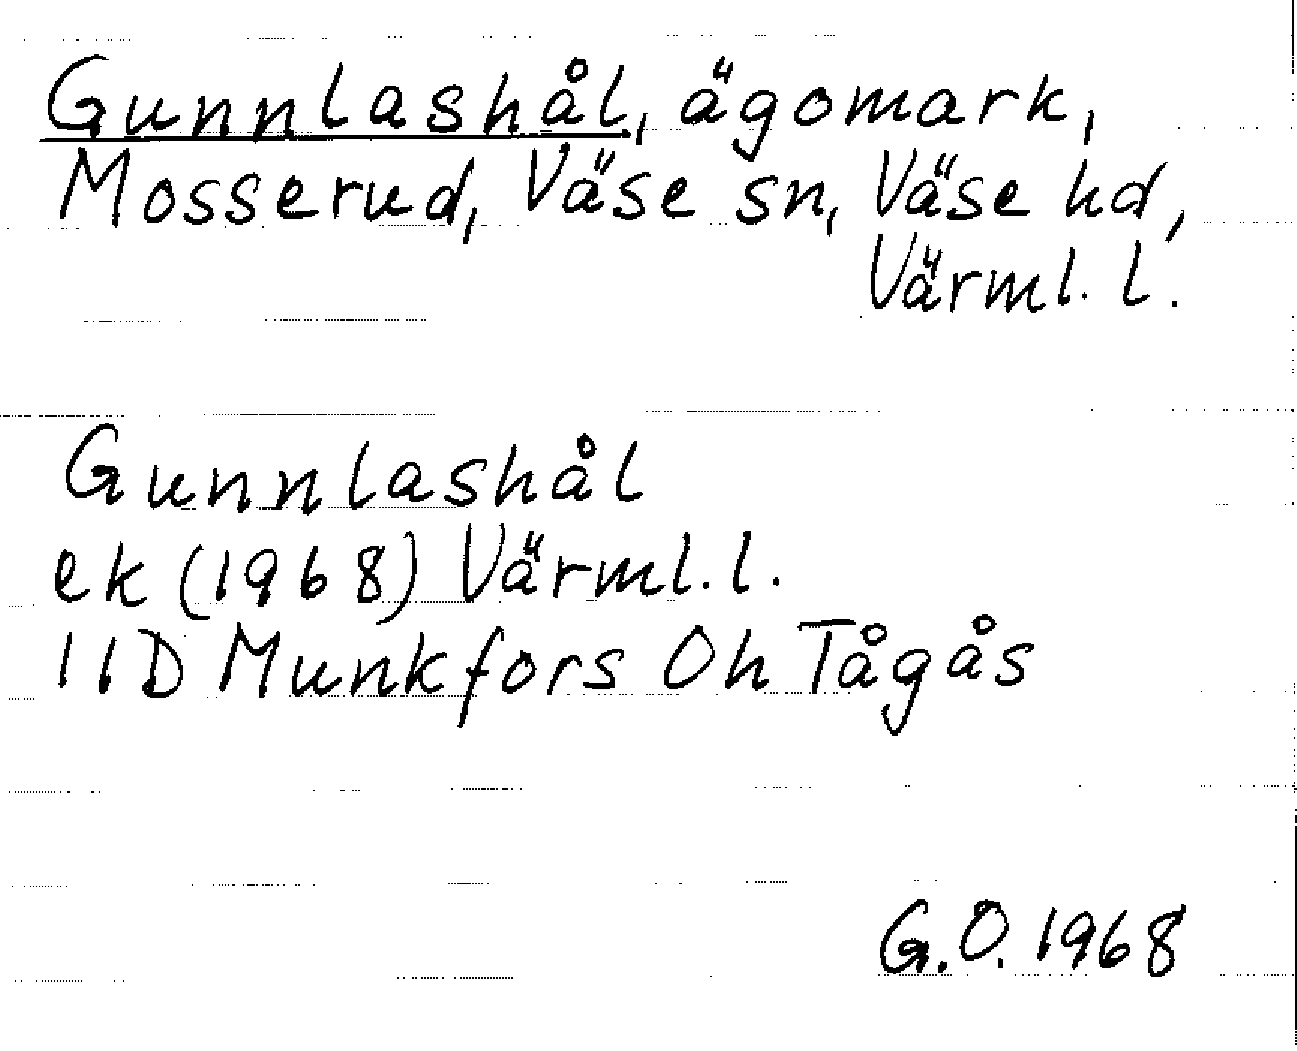 Gunnlashål, ägomark,
Mosserud, Väse sn, Väse hd,
Värml. l.
Gunnlashål
ek (1968) Värml. l.
11D Munkfors 0h Tågås
G.O. 1968